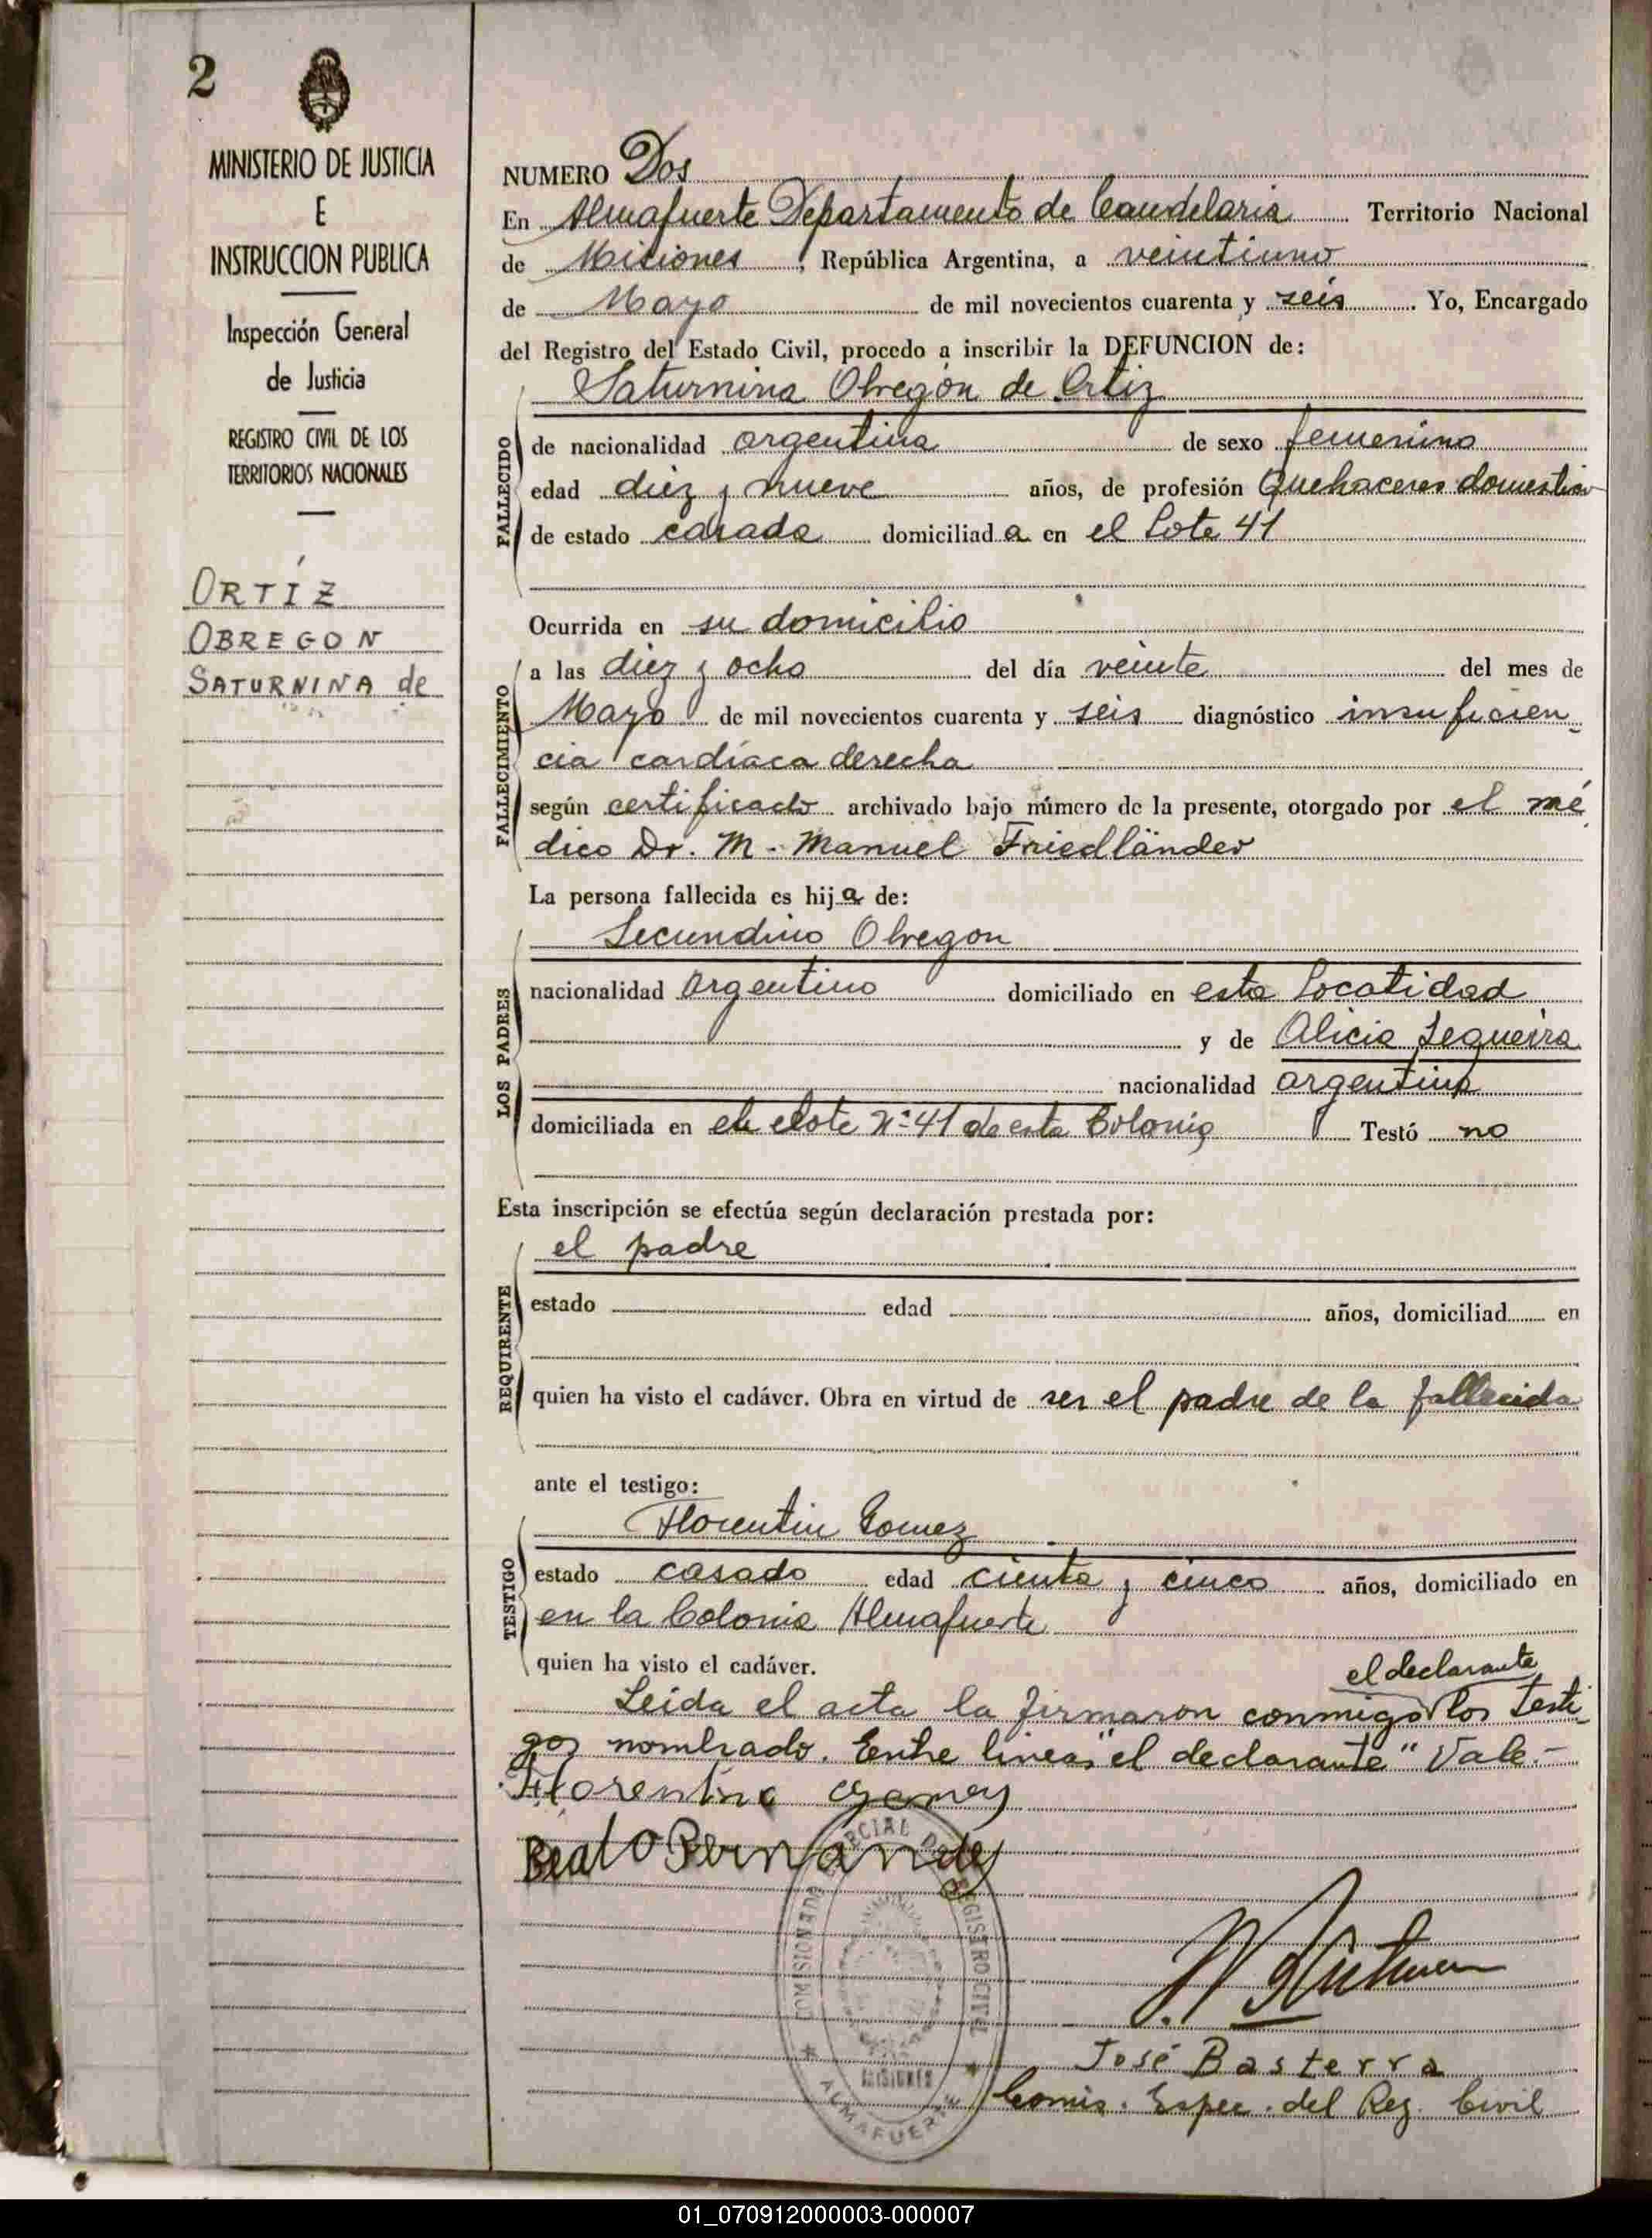 2
MINISTERIO DE JUSTICIA
E
INSTRUCCION PUBLICA
Inspección General
de Justicia
REGISTRO CIVIL DE LOS
TERRITORIOS NACIONALES
ORTÍZ
OBREGON
SATURNINA de
NUMERO Dos
En Almafuerte Departamento de Candelaria Territorio Nacional
de Misiones, República Argentina, a veintiuno
de Mayo de mil novecientos cuarenta y seis. Yo, Encargado
del Registro del Estado Civil, procedo a inscribir la DEFUNCION de:
Saturnina Obregón de Ortiz
FALLECIDO
de nacionalidad argentina de sexo femenino
edad diez y nueve años, de profesión Quehaceres domestico
de estado casada domiciliad a en el Lote 41
Ocurrida en su domicilio
FALLECIMIENTO
a las diez y ocho del día veinte del mes de
Mayo de mil novecientos cuarenta y seis diagnóstico insuficien-
cia cardíaca derecha
según certificado archivado bajo número de la presente, otorgado por el mé
dico Dr. M. Manuel Friedländer
La persona fallecida es hij a de:
LOS PADRES
Secundino Obregon
nacionalidad Argentino domiciliado en esta Localidad
y de Alicia Sequeira
nacionalidad argentina
domiciliada en el lote Nº 41 de esta Colonia Testó no
Esta inscripción se efectúa según declaración prestada por:
REQUIRENTE
el padre
estado edad años, domiciliad en
quien ha visto el cadáver. Obra en virtud de ser el padre de la fallecida
ante el testigo:
TESTIGO
Florentin Gomez
estado casado edad cienta y cinco años, domiciliado en
en la Colonia Almafuerte
quien ha visto el cadáver.
el declarante
Leída el acta la firmaron conmigo los testi-
gos nombrado. Entre lineas "el declarante" Vale.-
Florentino Gomes
Beato Fernandes
José Basterra
Comis. Espec. del Reg. Civil
COMISIONADO ESPECIAL DEL REGISTRO CIVIL
MISIONES
ALMAFUERTE
01_070912000003-000007